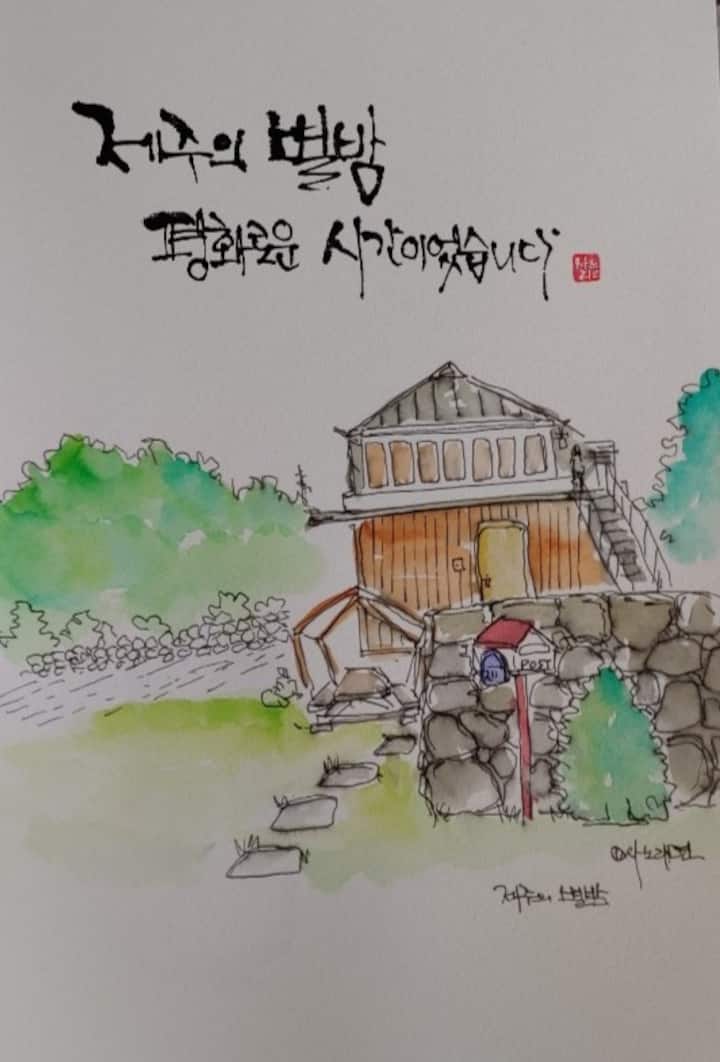 제주의 별밤
평화로운 시간이었습니다
POST
211
제주의 별밤